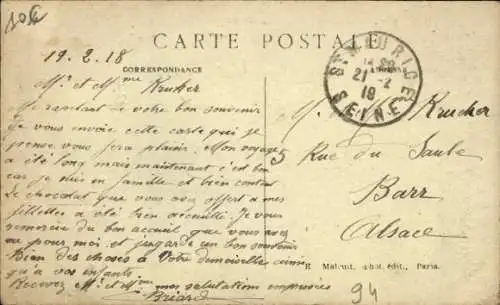 CARTE POSTALE
CORRESPONDANCE
19.2.18
Mr et Mme Krucker
Me rentant de votre bon souvenir
Je vous envoie cette carte qui je
pense vous fera plaisir. Mon voyage
a été long mais maintenant c'est bon
car je suis en famille et bien content
Le chocolat que vous avez offert a mes
fillettes a été bien accueilli. Je vous
remercie du bon accueil que vous avez
eu pour moi et je garde un bon souvenir
Bien des choses a Votre demoiselle ainsi
qu'a vos enfants.
Recevez Mr et Mme mes salutations empressées
Briard
ST MAURICE
21 -2
19
SEINE
M. Krucker
5 Rue du Saule
Barr
Alsace
E. Malcuit, phot. édit., Paris.
94